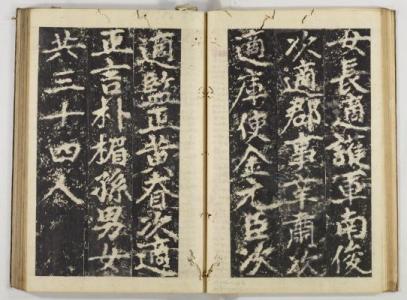 女長適護軍南俊
次適郡事辛肅次
適庫使金元臣次
適監正黃眘次適
正言朴楣孫男女
共三十四人